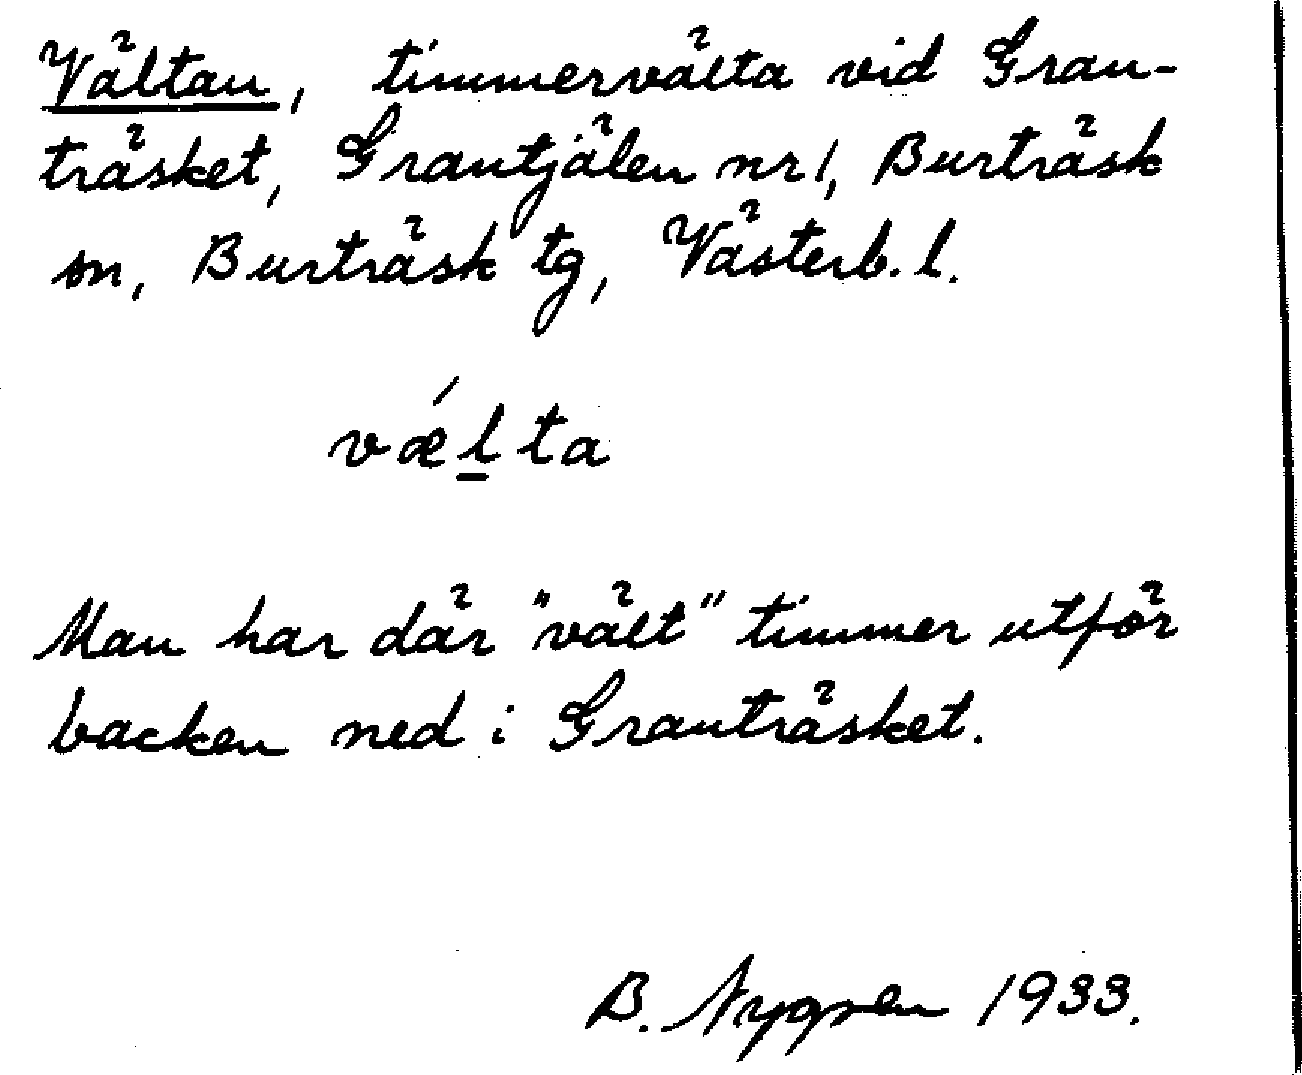 Vältan, timmervälta vid Gran-
träsket, Grantjälen nr 1, Burträsk
sn, Burträsk tg, Västerb. l.
vǽl̲ta
Man har där "vält" timmer utför
backen ned i Granträsket.
B. Nygren 1933.